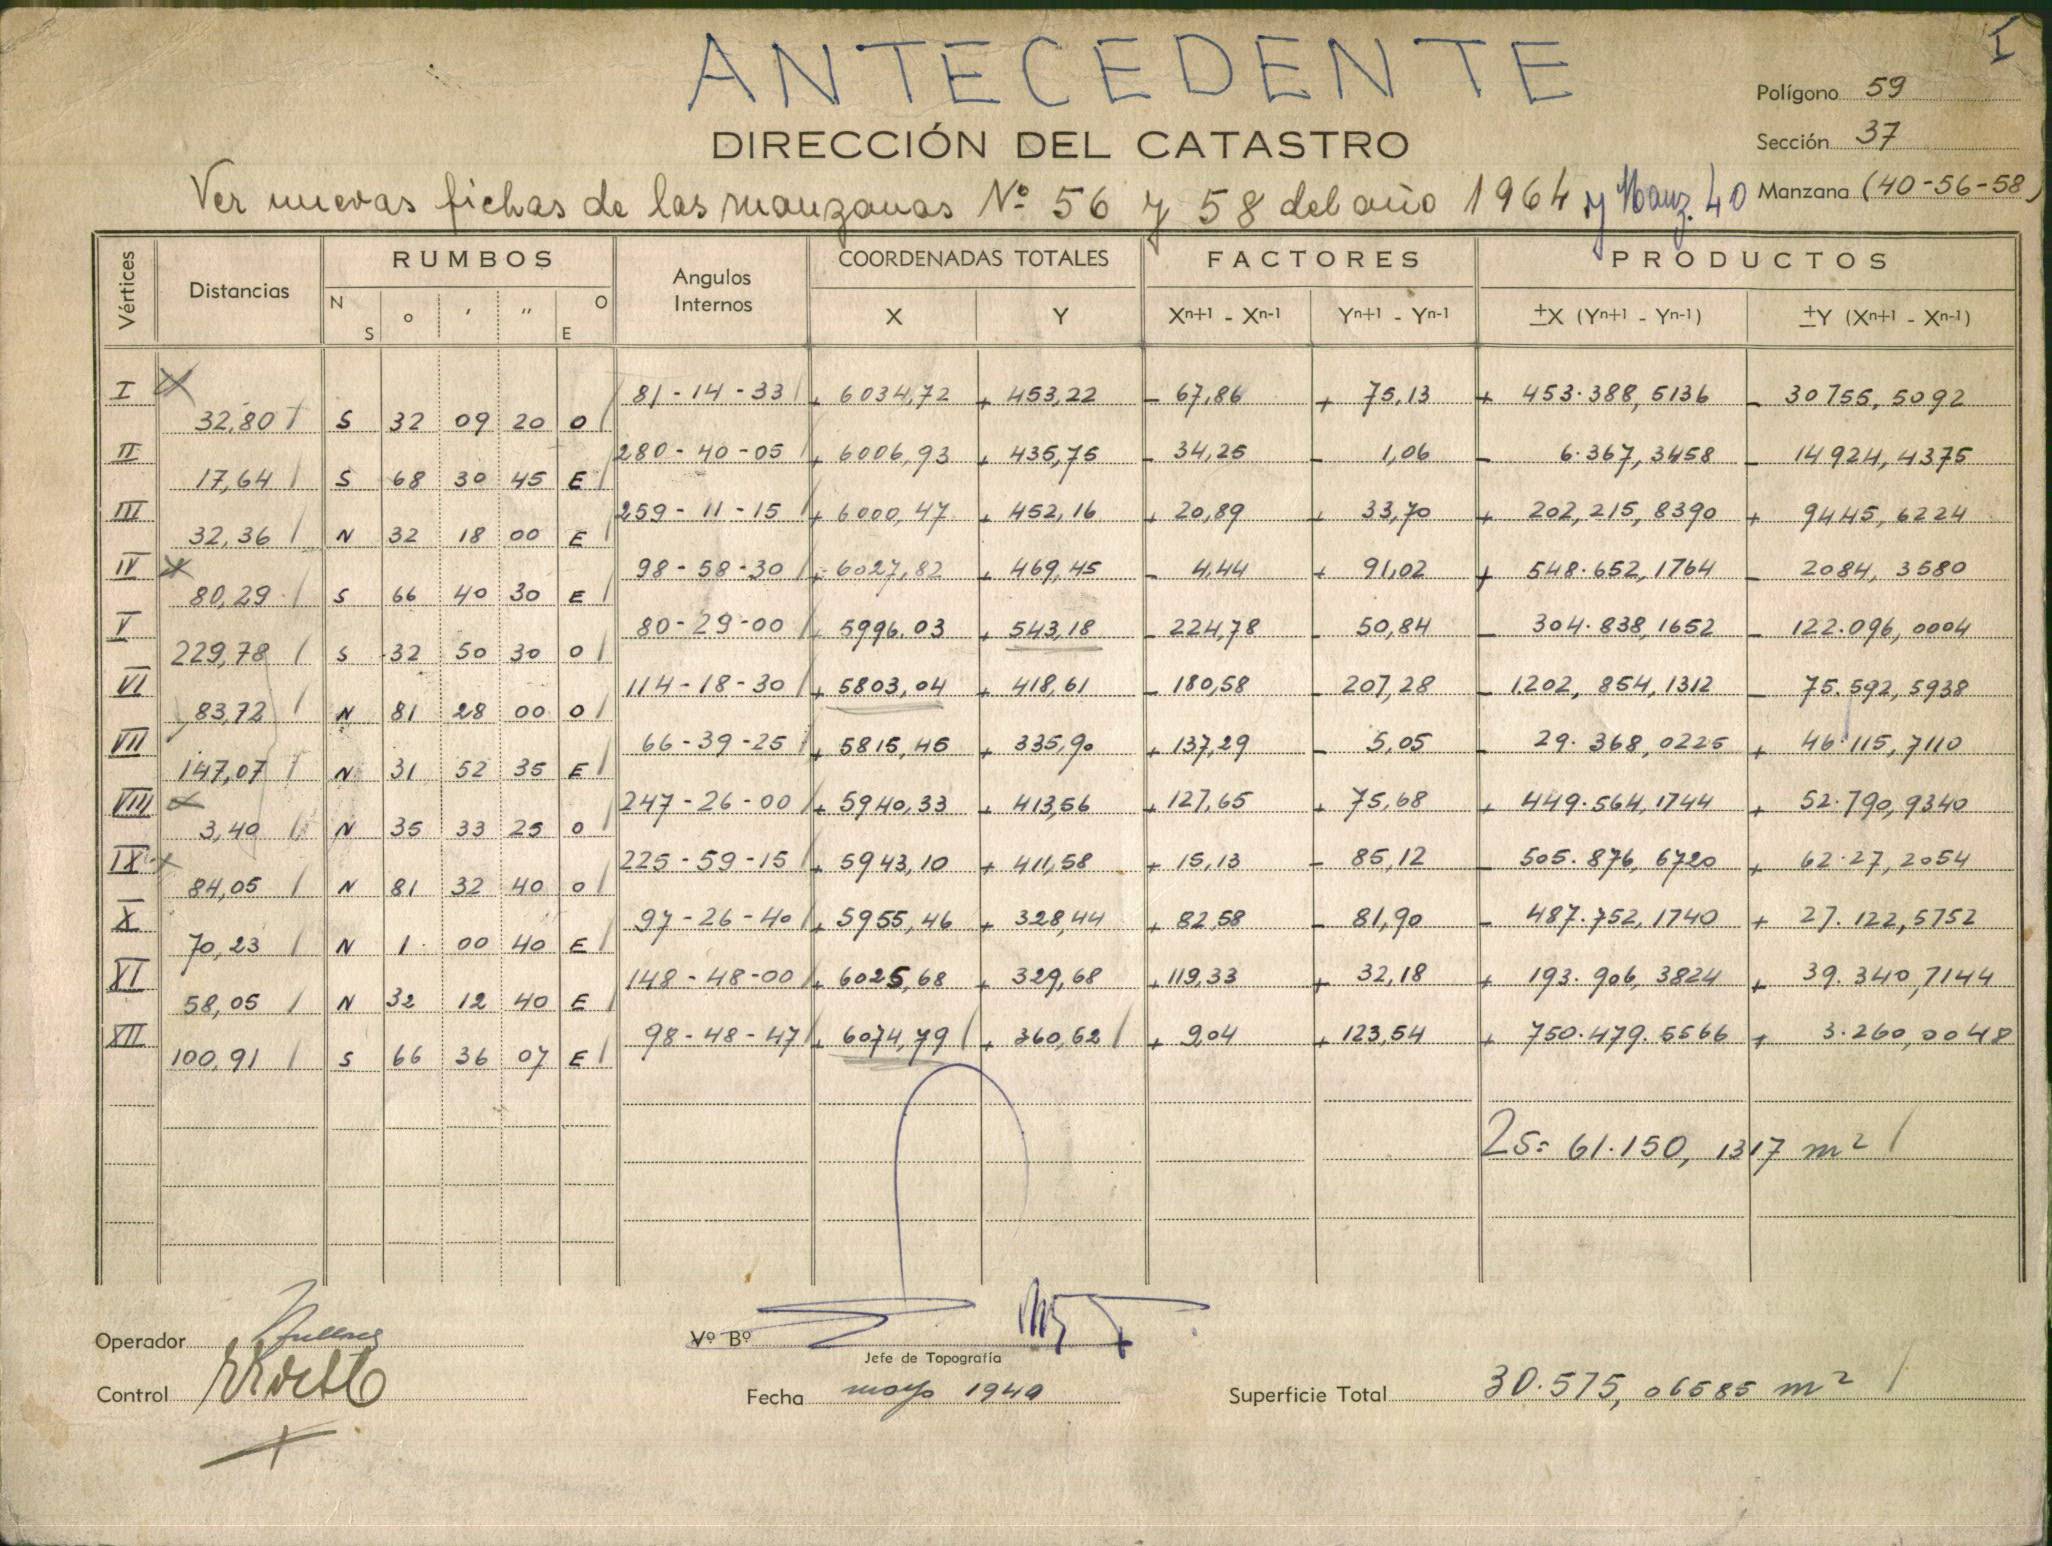 I
ANTECEDENTE
Polígono 59
DIRECCIÓN DEL CATASTRO
Sección 37
Ver nuevas fichas de las manzanas Nº 56 y 58 del año 1964 y Manz. 40
Manzana (40-56-58)
Vértices Distancias RUMBOS Angulos Internos COORDENADAS TOTALES FACTORES PRODUCTOS
N S o ' " O E X Y Xn+1 - Xn-1 Yn+1 - Yn-1 ±X (Yn+1 - Yn-1) ±Y (Xn+1 - Xn-1)
I 81-14-33 + 6034,72 + 453,22 - 67,86 + 75,13 + 453.388,5136 - 30755,5092
32,80 S 32 09 20 O
II 280-40-05 + 6006,93 + 435,75 - 34,25 - 1,06 - 6.367,3458 - 14924,4375
17,64 S 68 30 45 E
III 259-11-15 + 6000,47 + 452,16 + 20,89 + 33,70 + 202,215,8390 + 9445,6224
32,36 N 32 18 00 E
IV 98-58-30 + 6027,82 + 469,45 - 4,44 + 91,02 + 548.652,1764 - 2084,3580
80,29 S 66 40 30 E
V 80-29-00 + 5996.03 + 543,18 - 224,78 - 50,84 - 304.838,1652 - 122.096,0004
229,78 S 32 50 30 O
VI 114-18-30 + 5803,04 + 418,61 - 180,58 - 207,28 - 1202,854,1312 - 75.592,5938
83,72 N 81 28 00 O
VII 66-39-25 + 5815,45 + 335,90 + 137,29 - 5,05 - 29.368,0225 + 46.115,7110
147,07 N 31 52 35 E
VIII 247-26-00 + 5940,33 + 413,56 + 127,65 + 75,68 + 449.564,1744 + 52.790,9340
3,40 N 35 33 25 O
IX 225-59-15 + 5943,10 + 411,58 + 15,13 - 85,12 - 505.876,6720 + 62.27,2054
84,05 N 81 32 40 O
X 97-26-40 + 5955,46 + 328,44 + 82,58 - 81,90 - 487.752,1740 + 27.122,5752
70,23 N 1 00 40 E
XI 148-48-00 + 6025,68 + 329,68 + 119,33 + 32,18 + 193.906,3824 + 39.340,7144
58,05 N 32 12 40 E
XII 98-48-47 + 6074,79 + 360,62 + 9,04 + 123,54 + 750.479.5566 + 3.260,0048
100,91 S 66 36 07 E
2S= 61.150,1317 m²
Operador
Vº Bº
Jefe de Topografía
Control
Fecha mayo 1940
Superficie Total 30.575,06585 m²